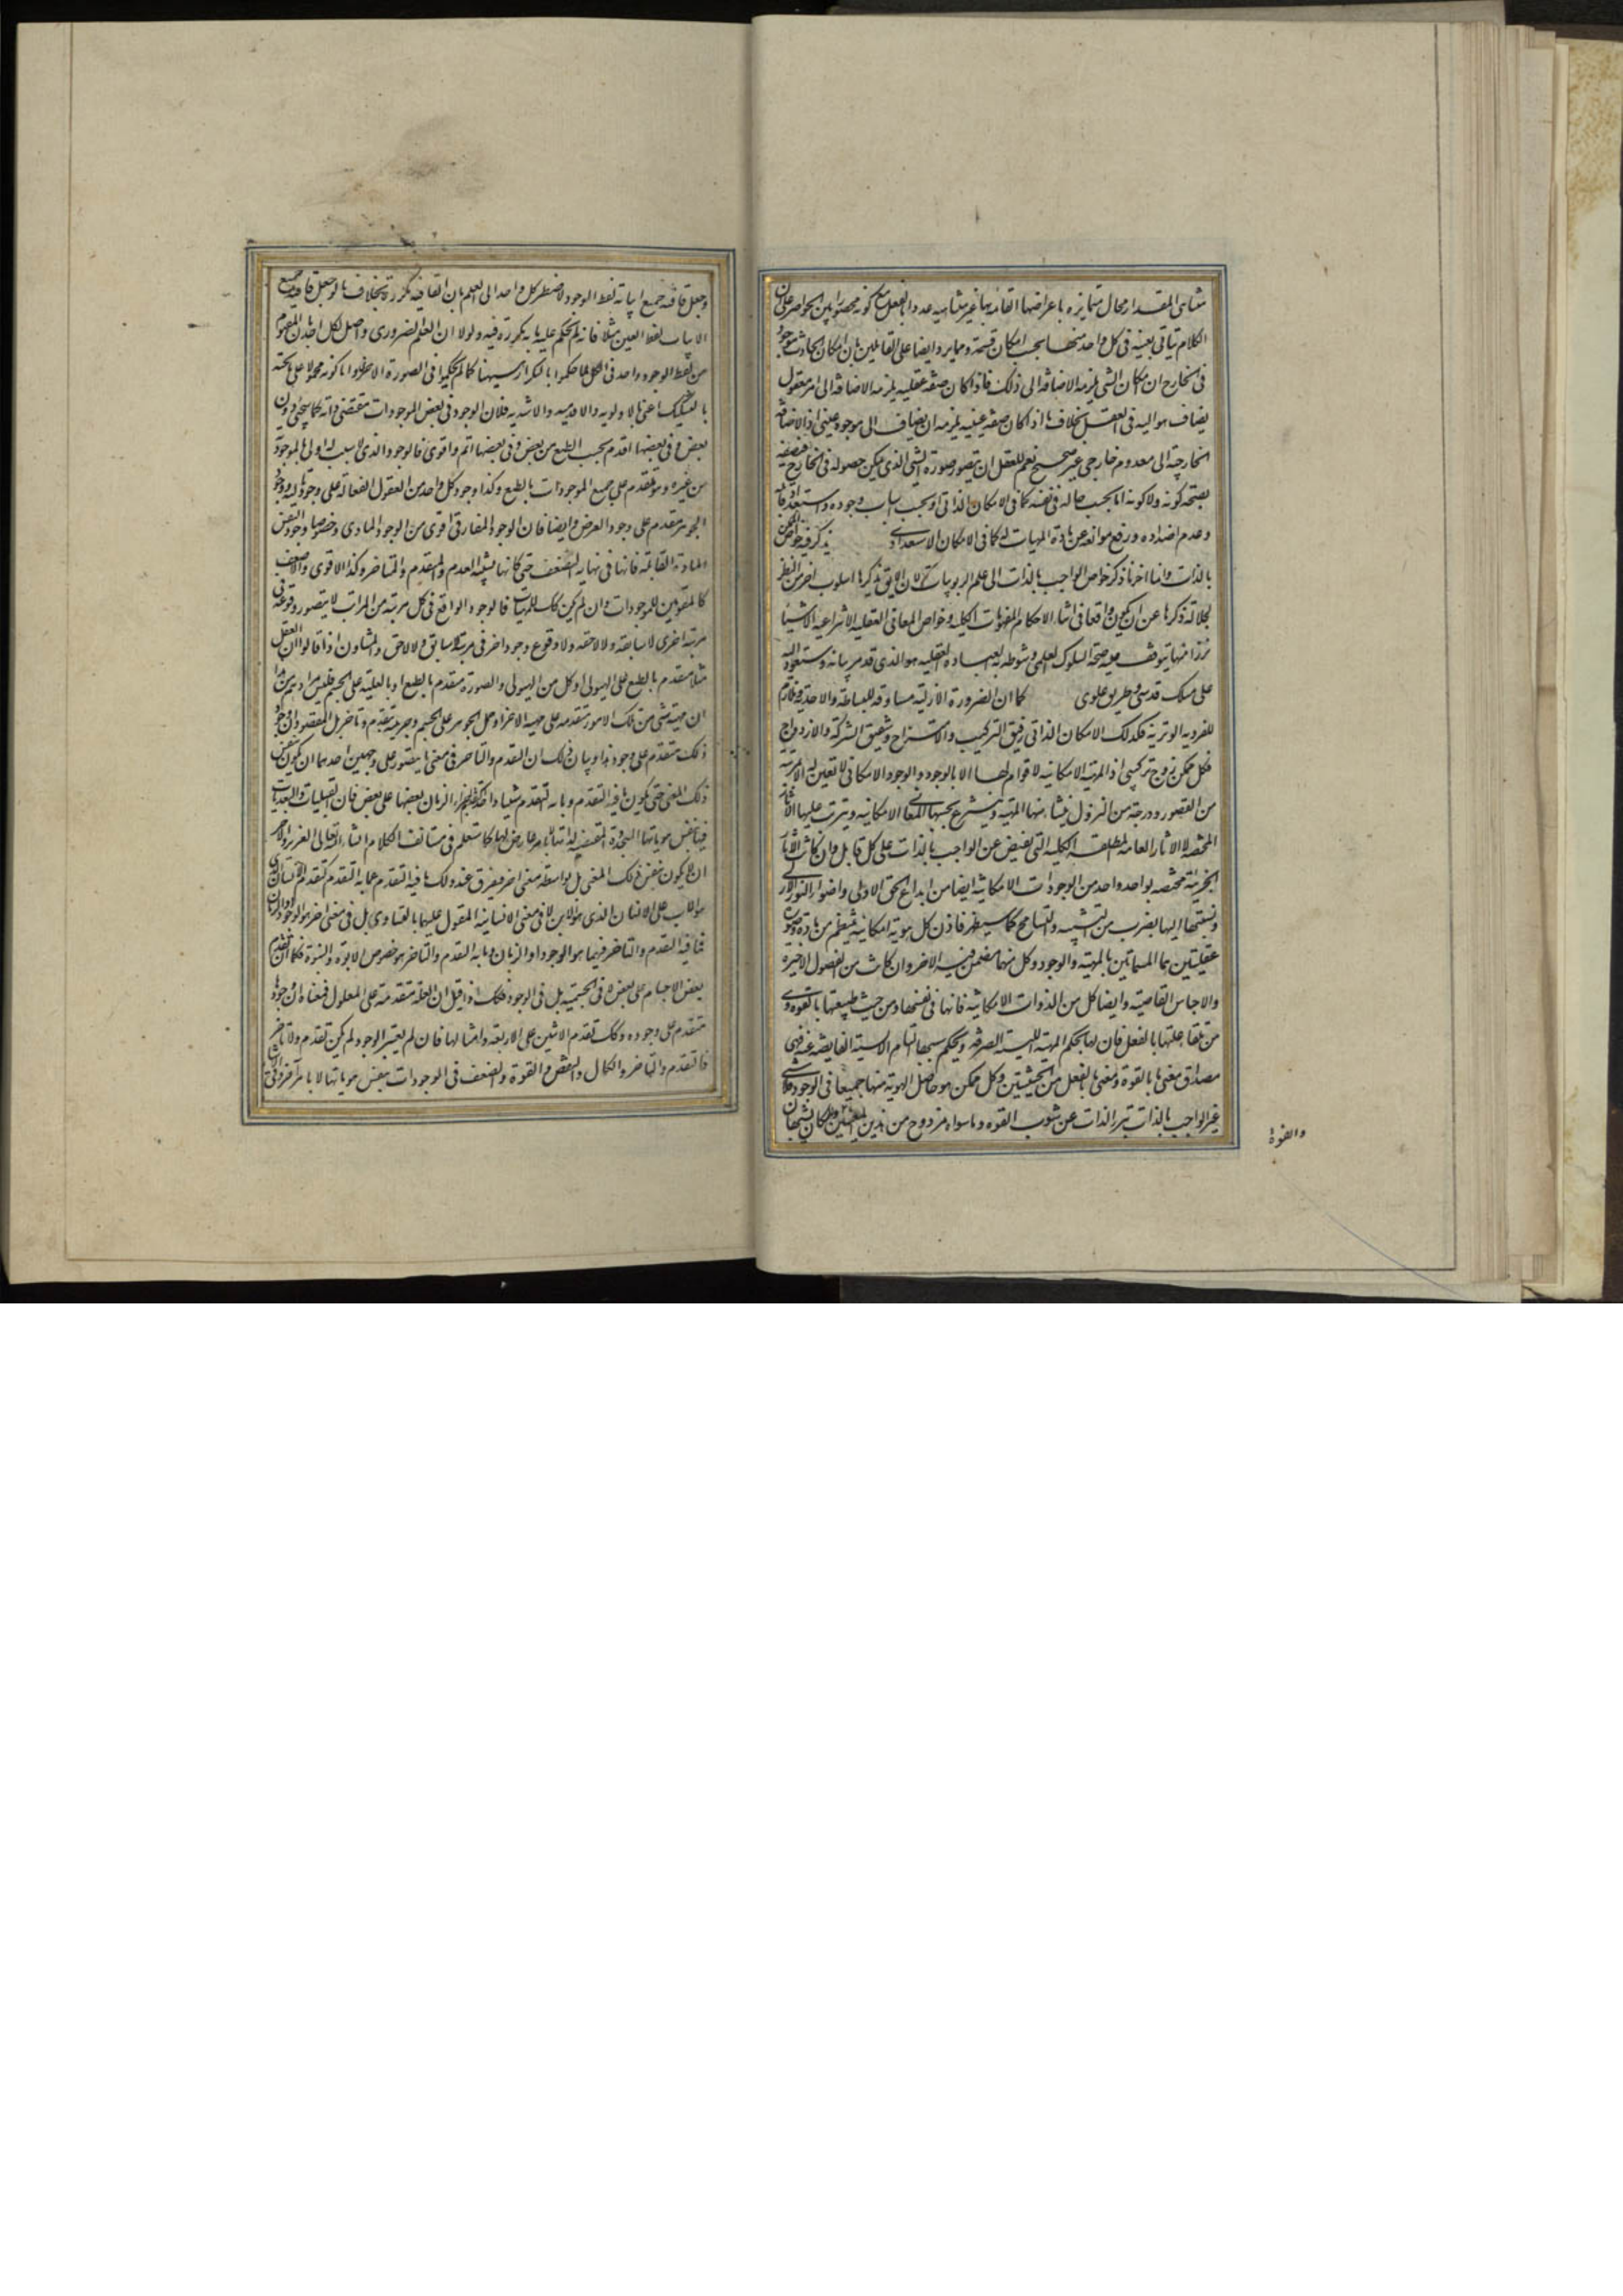 متناهى المقدار محال متمايزه باعراضها القائمه بها غير متناهيه عددا بالفعل مع كونه محصورا بين الحواصر على ان
الكلام يتاتى بعينه فى كل واحد منها بحسب امكان قسمته ومما يرد ايضا على القائلين بان امكان الحادث موجود
فى الخارج ان امكان الشى يلزمه الاضافه الى ذلك فاذا كان صفه عقليه يلزمه الاضافه الى امر معقول
يضاف هو اليه فى العقل بخلاف ما اذا كان صفه عينيه يلزمه ان يضاف الى موجود عينى اذ الاضافه
الخارجيه الى معدوم خارجى غير صحيح نعم للعقل ان يتصور صورة الشى الذى يمكن حصوله فى الخارج فيصفه
بصحه كونه ولا كونه اما بحسب حاله فى نفسه كما فى الامكان الذاتى او بحسب اسباب وجوده واستعداد قابله
وعدم اضداده ورفع موانعه عن مادة المهيات له كما فى الامكان الاستعدادى يذكر فيه خواص الممكن
بالذات وانما اخرنا ذكر خواص الواجب بالذات الى علم الربوبيات لان اللايق بذكرها اسلوب اخر من النظر
لجلاله ذكرها عن ان يكون واقعا فى اثناء الاحكام المفهومات الكليه وخواص المعانى العقليه الانتزاعيه الا شيئا
نزرا منها يتوقف عليه صحة السلوك العلمى وشوطه العباده العقليه هو الذى قد مر بيانه وستعود اليه
على مسلك قدسى وطريق علوى كما ان الضرورة الازليه مساوقه للبساطه والاحديه وملازم
للفرديه الوتريه فكذلك الامكان الذاتى رفيق التركيب والامتزاج وشقيق الشركه والازدواج
فكل ممكن زوج تركيبى اذ المهيه الامكانيه لا قوام لها الا بالوجود والوجود الامكانى لا تعين له الا بمرتبه
من القصور ودرجه من النزول ينشاء منها المهيه وينتزع بحسبها المعانى الامكانيه ويترتب عليها الاثار
المختصه لا الاثار العامه المطلقه الكليه التى تفيض عن الواجب بالذات على كل قابل وان كانت الاثار
الجزئيه مختصه بواحد واحد من الوجودات الامكانيه ايضا من ابداع الحق الاول واضواء النور الازلى
ونسبتها اليها بضرب من التشبيه والتسامح كما سيظهر فاذن كل هويه امكانيه ينتظم من مادة وصورة
عقليتين هما المسماتين بالمهيه والوجود وكل منهما مضمن فيه الاخر وان كانت من الفصول الاخيره
والاجناس القاصيه وايضا كل من الذوات الامكانيه فانها فى نفسها ومن حيث طبيعتها بالقوه وهى
من تلقاء علتها بالفعل فان لها بحكم المهيه الليسيه الصرفه ويحكم سببها التام الايسيه الفايضه عنه فهى
مصداق معنى ما بالقوه ومعنى ما بالفعل من الحيثيتين وكل ممكن هو حاصل الهويه منهما جميعا فى الوجود فلا شى
غير الواجب بالذات متبرى الذات عن شوب القوه وما سواه مزدوج من هذين المعنيين والامكان يشبهان
والقوة
وجعل قافيه جميع ابياته لفظ الوجود لاضطر كل واحد الى العلم بان القافيه مكررة بخلاف ما لو جعل قافيه جميع
الابيات لفظ العين مثلا فانه لم يحكم عليه بانه مكررة فيه ولولا ان العلم الضرورى حاصل لكل احد بان المفهوم
من لفظ الوجود واحد فى الكل لما حكموا بالتكرار هيهنا كما لم يحكموا فى الصورة الاخرى واما كونه محمولا على ما تحته
بالتشكيك اعنى بالاولويه والاقدميه والاشديه فلان الوجود فى بعض الموجودات مقتضى ذاته كما سيجئ دون
بعض وفى بعضها اقدم بحسب الطبع من بعض وفى بعضها اتم واقوى فالوجود الذى لا سبب له اولى بالموجوديه
من غيره وهو متقدم على جميع الموجودات بالطبع وكذا وجود كل واحد من العقول الفعاله على وجود تاليه ووجود
الجوهر متقدم على وجود العرض وايضا فان الوجود المفارقى اقوى من الوجود المادى وخصوصا وجود نفس
المادة القابله فانها فى نهايه الضعف حتى كانها يشبه العدم والمتقدم والمتاخر وكذا الاقوى والاضعف
كالمقومين للموجودات وان لم يكن كك للمهيات فالوجود الواقع فى كل مرتبه من المراتب لا يتصور وقوعه فى
مرتبه اخرى لا سابقه ولا لاحقه ولا وقوع وجود اخر فى مرتبته لا سابق ولا لاحق والمشاون اذا قالوا ان العقل
مثلا متقدم بالطبع على الهيولى او كل من الهيولى والصورة متقدم بالطبع او بالعليه على الجسم فليس مرادهم من هذا
ان مهيه شى من تلك الامور متقدمه على مهيه الاخر وحمل الجوهر على الجسم وجزئيه بتقدم وتاخر بل المقصود ان وجود
ذلك متقدم على وجود هذا وبيان ذلك ان التقدم والتاخر فى معنى ما يتصور على وجهين احدهما ان يكون بنفس
ذلك المعنى حتى يكون ما فيه التقدم وما به التقدم شيئا واحدا كتقدم اجزاء الزمان بعضها على بعض فان القبليات والبعديات
فيها بنفس هوياتها المتجددة المقتضيه لذاتها لا بامر عارض لها كما ستعلم فى مستانف الكلام انشاء الله تعالى العزيز والاخر
ان لا يكون بنفس ذلك المعنى بل بواسطه معنى اخر فيفترق عند ذلك ما فيه التقدم عما به التقدم كتقدم الانسان الذى
هو الاب على الانسان الذى هو الابن لا فى معنى الانسانيه المقول عليهما بالتساوى بل فى معنى اخر هو الوجود او الزمان
فما فيه التقدم والتاخر فيهما هو الوجود او الزمان وما به التقدم والتاخر هو خصوص الابوة والبنوة فكما ان تقدم
بعض الاجسام على بعض لا فى الجسميه بل فى الوجود فكك اذا قيل ان العله متقدمه على المعلول فمعناه ان وجودها
متقدم على وجوده وكك تقدم الاثنين على الاربعه وامثالها فان لم يعتبر الوجود لم يكن تقدم ولا تاخر
فالتقدم والتاخر والكمال والنقص والقوة والضعف فى الوجودات بنفس هوياتها لا بامر اخر وفى